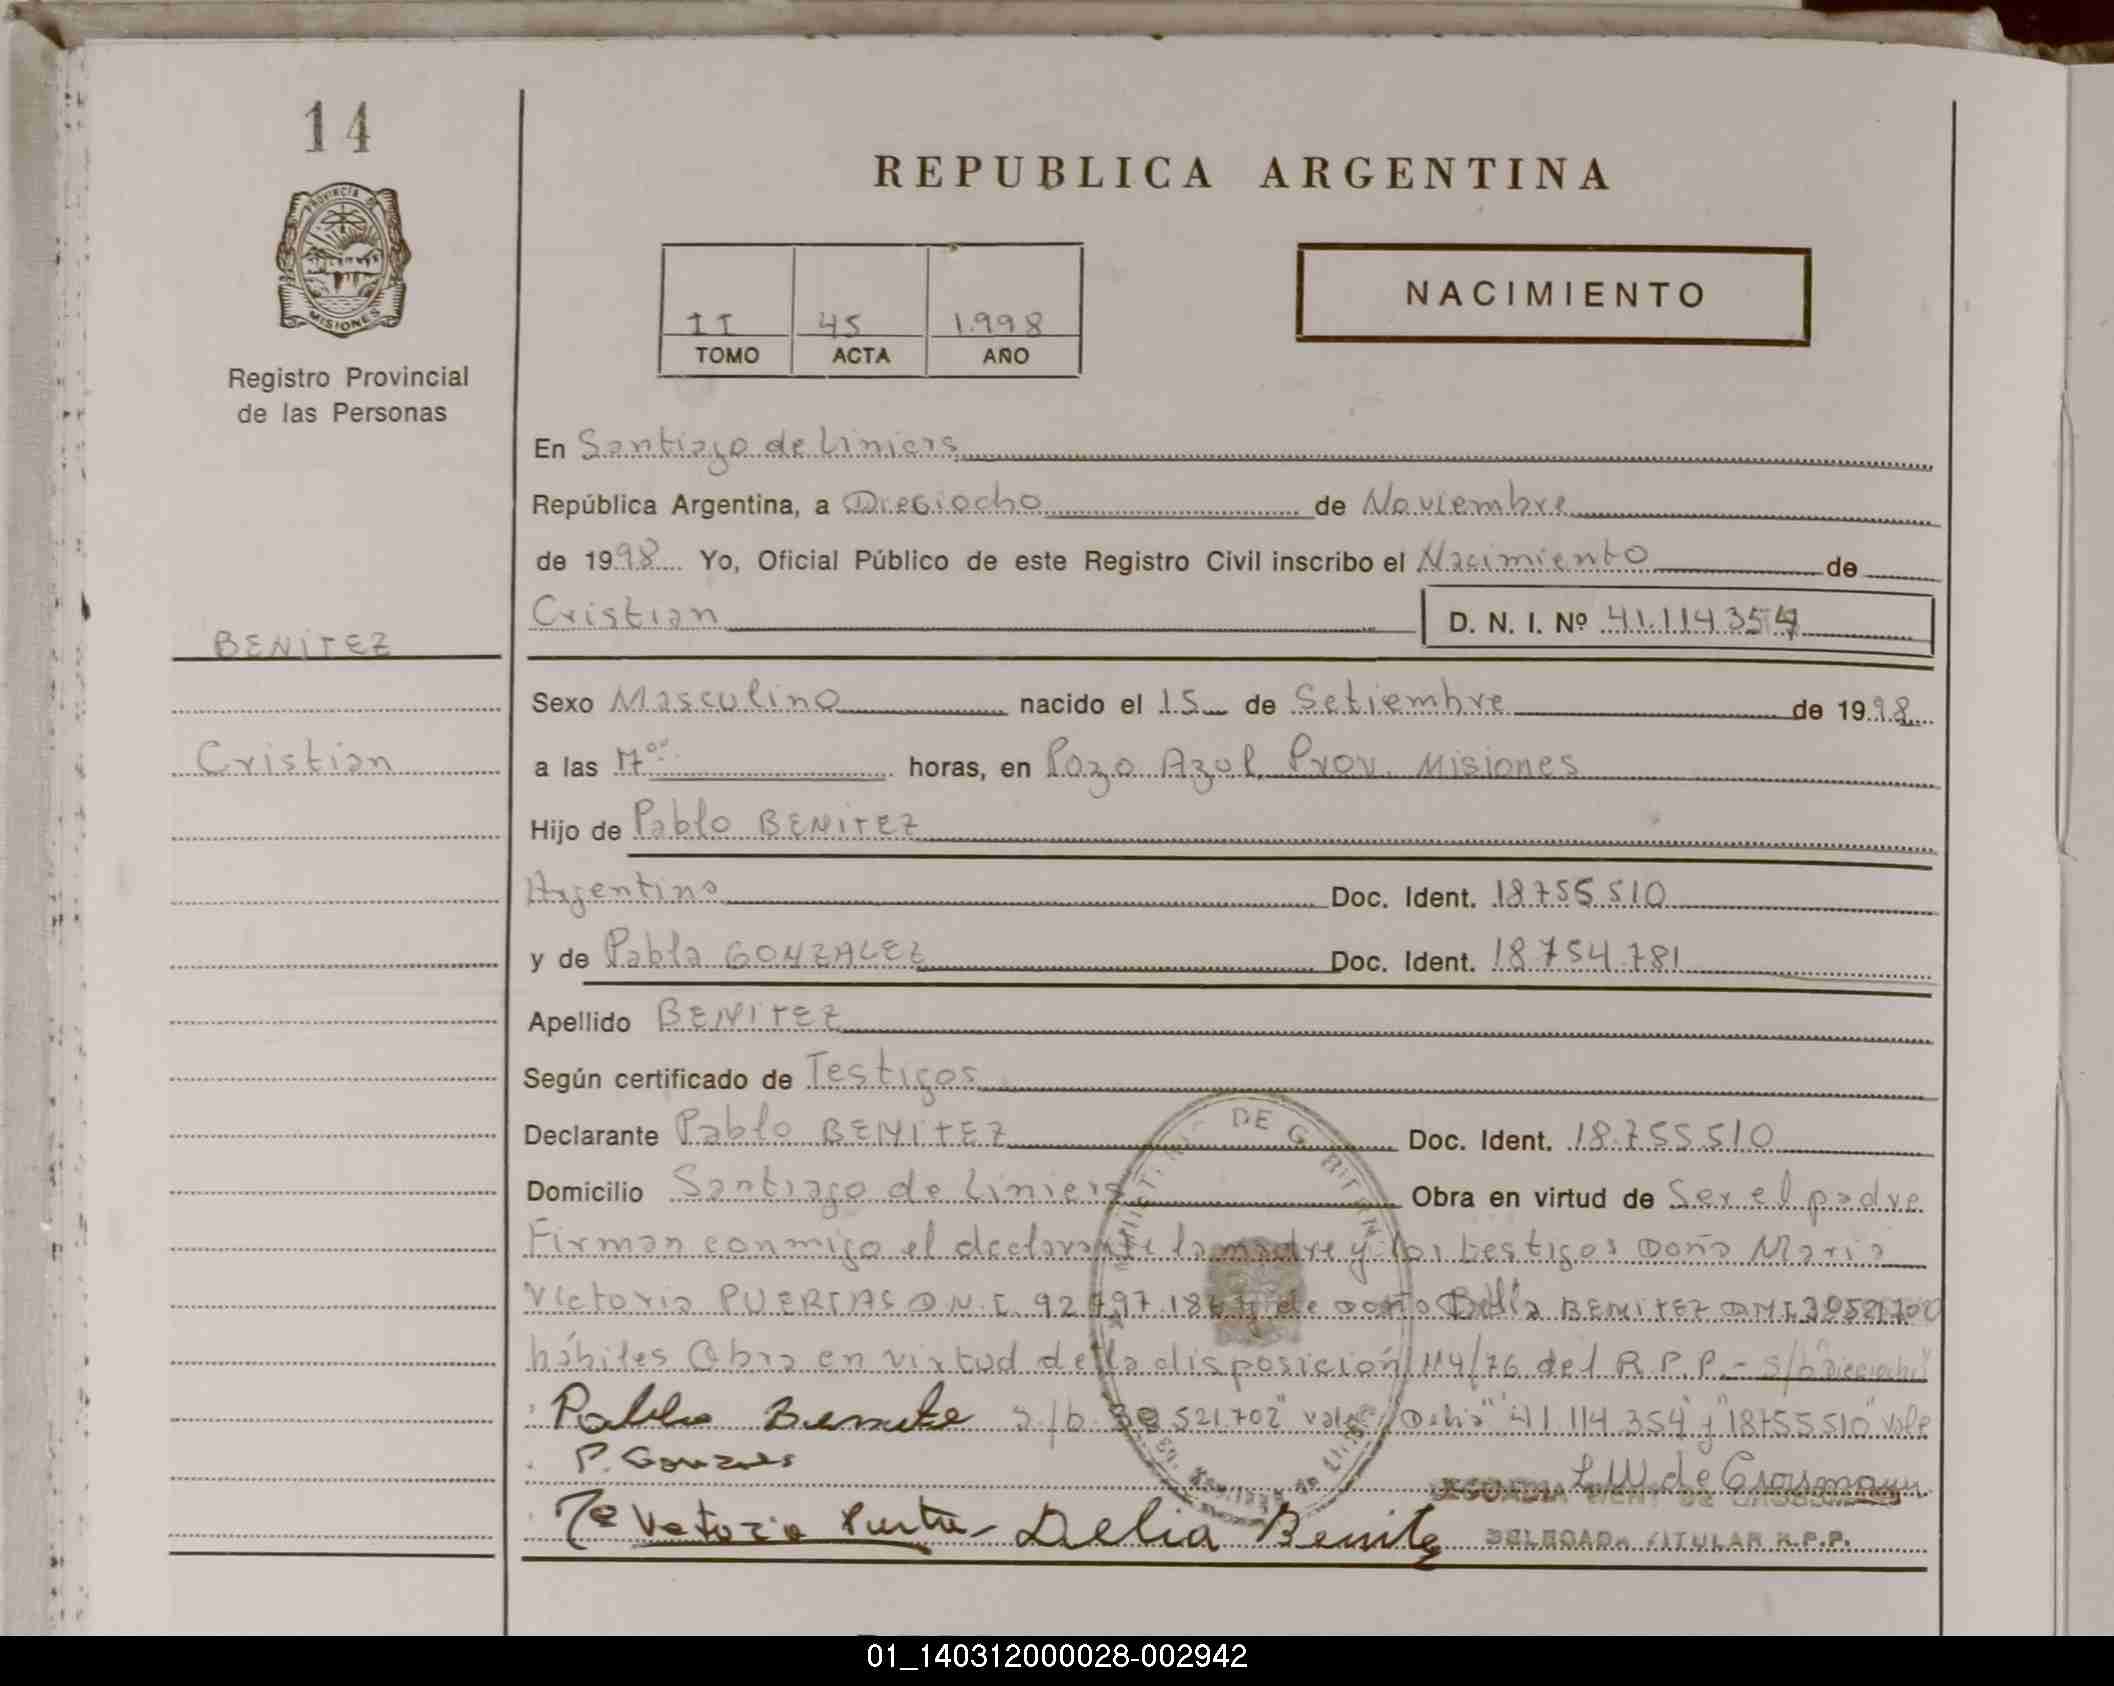 14
PROVINCIA DE
MISIONES
Registro Provincial
de las Personas
REPUBLICA ARGENTINA
II 45 1.998
TOMO ACTA AÑO
NACIMIENTO
En Santiago de Liniers
República Argentina, a Dieciocho de Noviembre
de 1998 Yo, Oficial Público de este Registro Civil inscribo el Nacimiento de
Cristian D. N. I. Nº 41.114.354
BENITEZ
Sexo Masculino nacido el 15 de Setiembre de 1998
Cristian
a las 17⁰⁰ horas, en Pozo Azul Prov. Misiones
Hijo de Pablo BENITEZ
Argentino Doc. Ident. 18755.510
y de Pabla GONZALEZ Doc. Ident. 18.754.781
Apellido BENITEZ
Según certificado de Testigos
Declarante Pablo BENITEZ Doc. Ident. 18.755.510
Domicilio Santiago de Liniers Obra en virtud de Ser el padre
Firman conmigo el declarante la madre y los testigos Doña Maria
Victoria PUERTAS D.N.I. 92 BENITEZ DNI
hábiles Obra en virtud de la disposición 114/76 del R.P.P.- s/b "Dieciocho"
Pablo Benitez s/b 521.702" vale "Delia" "41.114.354" y "18755510" vale
P. Gonzales
L.W. de
Victoria Delia Benitez DELEGADA TITULAR R.P.P.
01_140312000028-002942